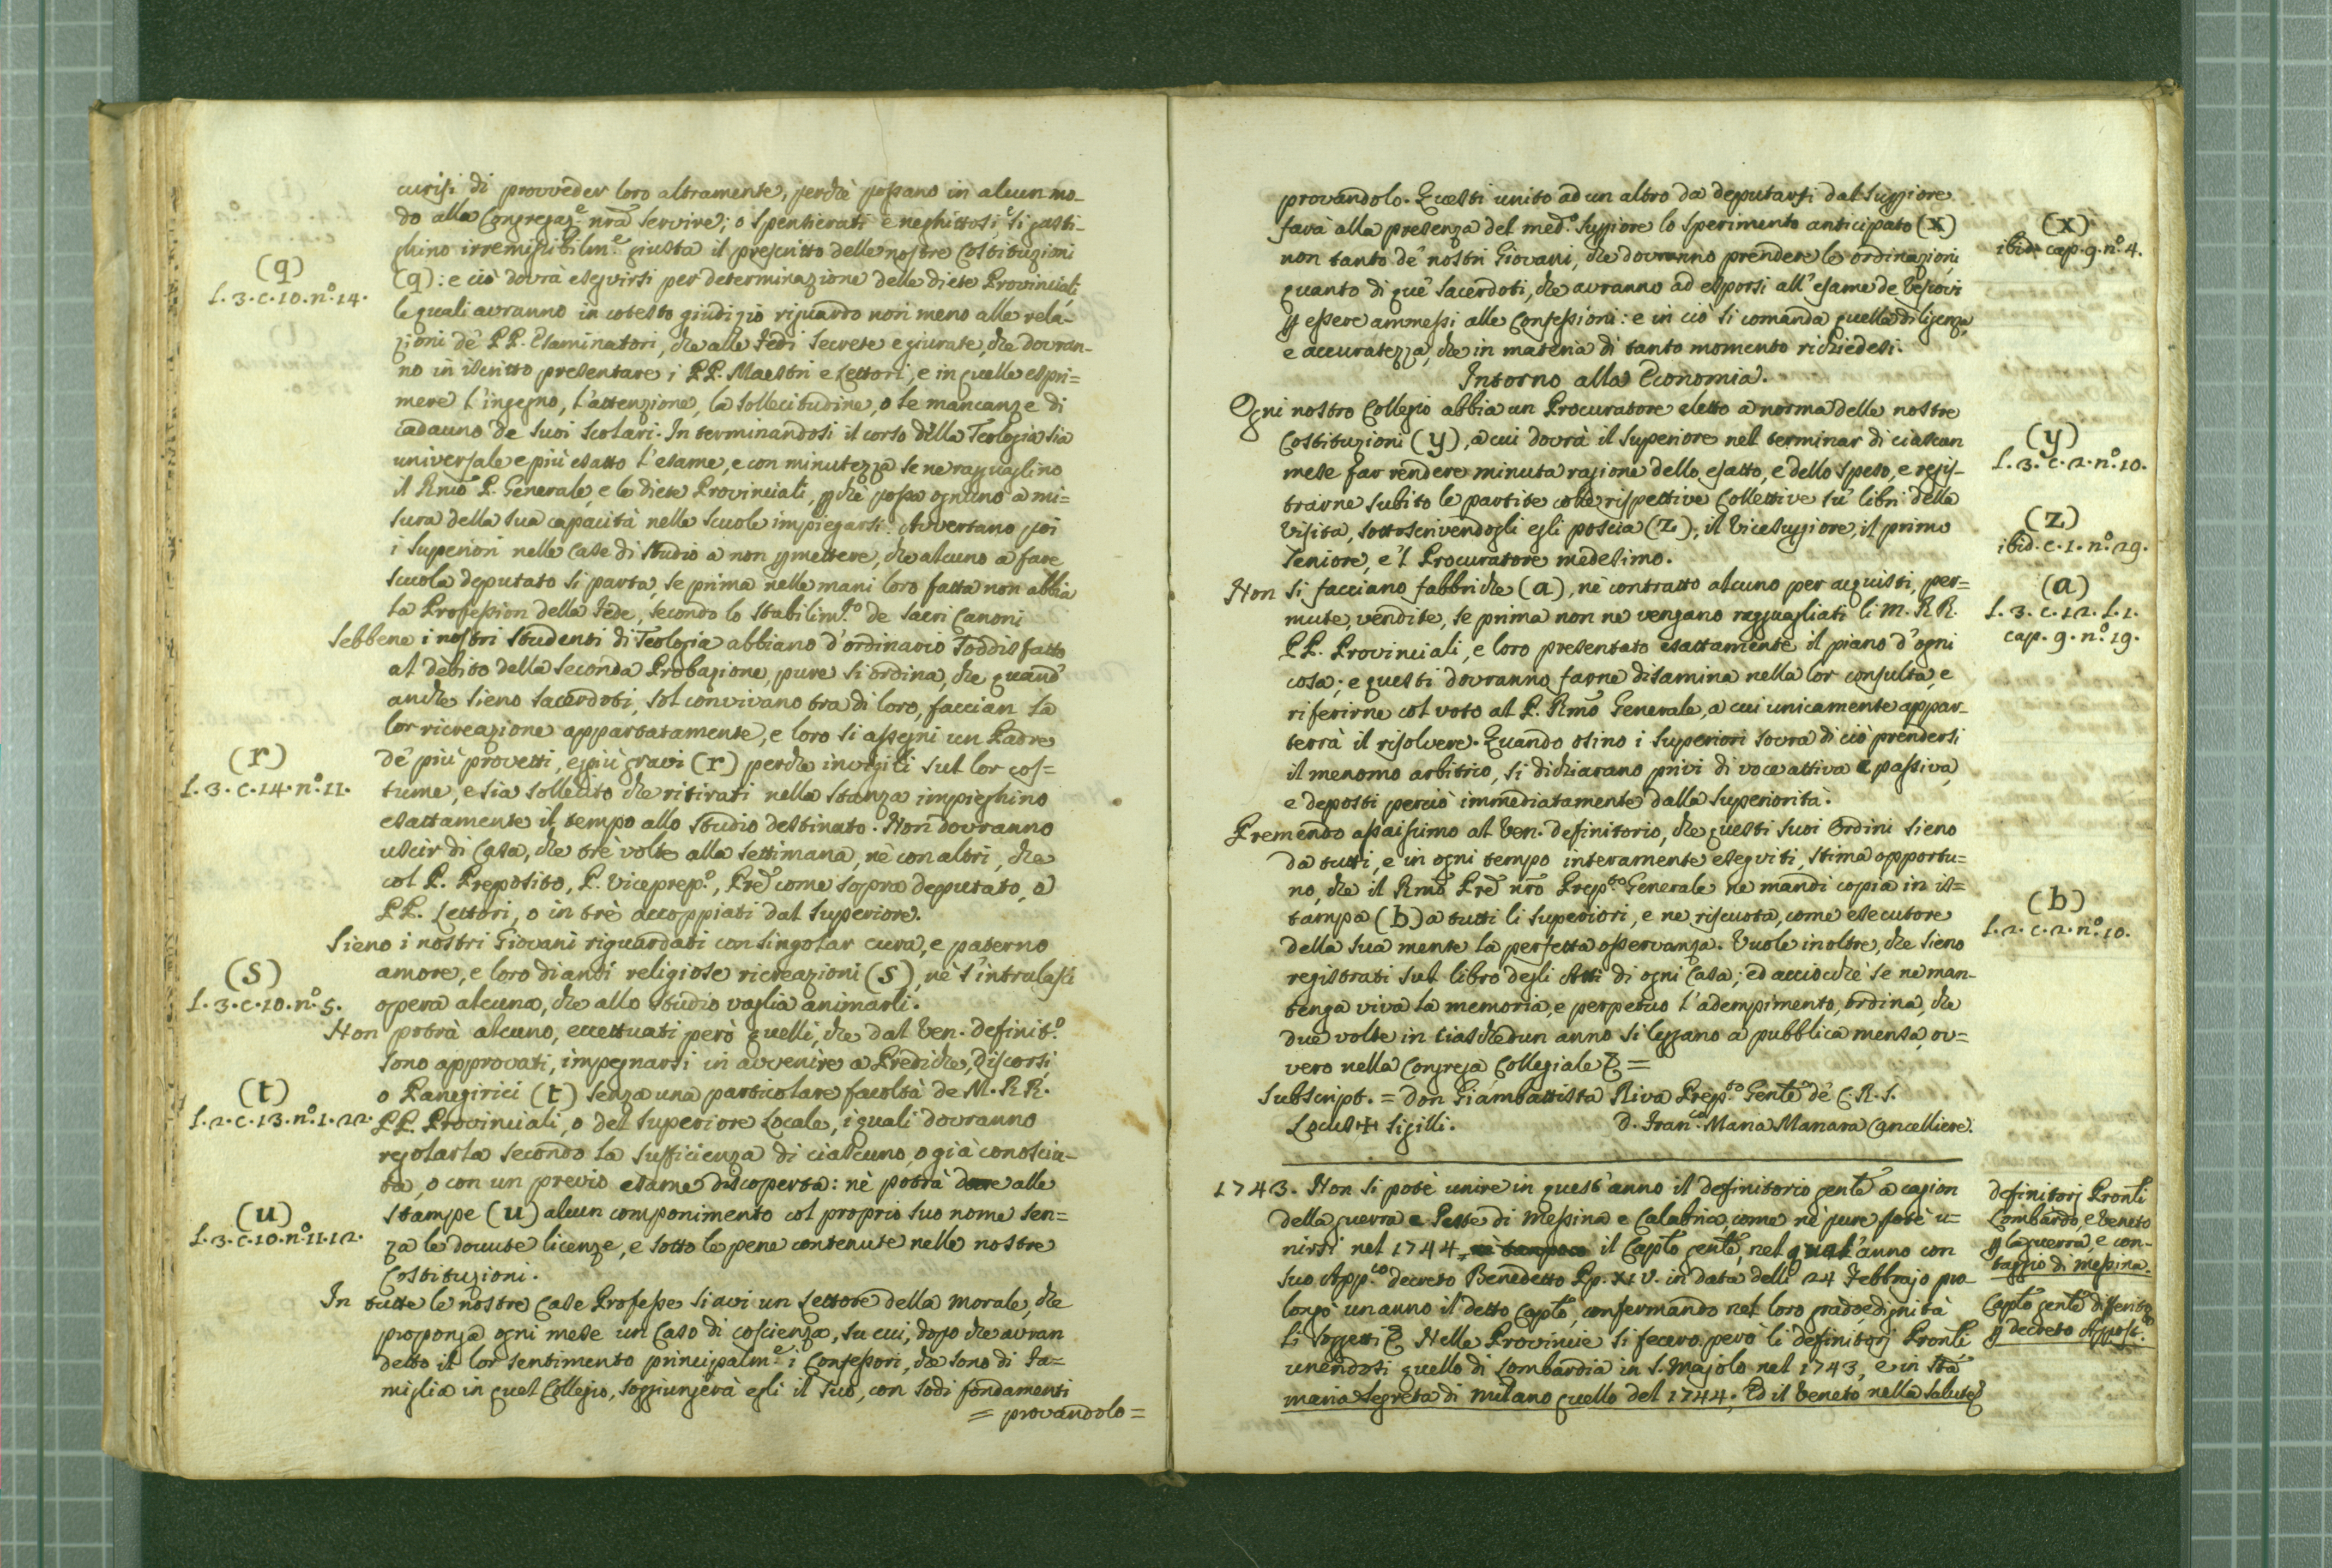 curisi di provveder loro altramente, perchè possano in alcun mo-
do alla Congregaz.e nrã servire; o spenserati e neghittosi, si gasti-
ghino irremissibilm.e giusta il prescritto delle nostre Costituzioni
(q)
L. 3. c. 10. n.o 14.
(q): e ciò dovrà eseguirsi per determinazione delle diete Provinciali
le quali avranno in cotesto giudizio riguardo non meno alle rela-
zioni de' PP. Esaminatori, che alle Fedi secrete e giurate, che dovran-
no in iscritto presentare i PP. Maestri e Lettori, e in quelle espri=
mere l'ingegno, l'attenzione, la sollecitudine, o le mancanze di
cadauno de suoi scolari. In terminandosi il corso della Teologia sia
universale e più esatto l'esame, e con minutezza se ne ragguaglino
il Rmõ P. Generale, e le diete Provinciali, pchè possa ognuno a mi=
sura della sua capacità nelle scuole impiegarsi. Avvertano poi
i Superiori nelle Case di studio a non pmettere, che alcuno a fare
scuola deputato si parta, se prima nelle mani loro fatta non abbia
la Profession della Fede, secondo lo stabilim.to de sacri Canoni
Sebbene i nostri studenti di Teologia abbiano d'ordinario soddisfatto
al debito della seconda Probazione, pure si ordina, che quand'
anche sieno sacerdoti, sol convivano tra di loro, faccian la
lor ricreazione appartatamente, e loro si assegni un Padre
(r)
L. 3. c. 14. n.o 11.
de' più provetti, e più gravi (r) perchè invigili sul lor cos=
tume, e sia sollecito che ritirati nella stanza impieghino
esattamente il tempo allo studio destinato. Non dovranno
uscir di Casa, che tre volte alla settimana, nè con altri, che
col P. Preposito, P. Viceprep.o, Pred come sopra deputato, o
PP. Lettori, o in trè accoppiati dal Superiore.
Sieno i nostri Giovani riguardati con singolar cura, e paterno
amore, e loro diansi religiose ricreazioni (s), nè s'intralasci
(s)
L. 3. c. 10. n.o 5.
opera alcuna, che allo studio vaglia animarli.
Non potrà alcuno, eccettuati però quelli, che dal Ven. definit.o
sono approvati, impegnarsi in avvenire a Prediche, discorsi,
(t)
L. 2. c. 13. n.o 1. 22.
o Panegirici (t) senza una particolare facoltà de M. RR.
PP. Provinciali, o del Superiore Locale, i quali dovranno
regolarla secondo la sufficienza di ciascuno, o già conosciu-
ta, o con un previo esame discoperta: nè potrà dare alle
(u)
L. 3. c. 10. n.o 11. 12.
stampe (u) alcun componimento col proprio suo nome sen=
za le dovute licenze, e sotto le pene contenute nelle nostre
Costituzioni.
In tutte le nostre Case Professe siavi un Lettore della Morale, che
proponga ogni mese un Caso di coscienza, su cui, dopo che avran
detto il lor sentimento principalm.e i Confessori, che sono di fa=
miglia in quel Collegio, soggiungerà egli il suo, con sodi fondamenti
= provandolo =
provandolo. Questi unito ad un altro da deputarsi dal Suppiore
farà alla presenza del med.o Suppiore lo sperimento anticipato (x)
(x)
ibid. cap. 9. n.o 4.
non tanto de' nostri Giovani, che dovranno prendere le ordinazioni,
quanto di que' sacerdoti, che avranno ad esporsi all'esame de Vescovi
p essere ammessi alle Confessioni: e in ciò si comanda quella diligenza,
e accuratezza, che in materia di tanto momento richiedesi.
Intorno alla Economia.
Ogni nostro Collegio abbia un Procuratore eletto a norma delle nostre
(y)
L. 3. c. 2. n.o 10.
Costituzioni (y), a cui dovrà il Superiore nel terminar di ciascun
mese far rendere minuta ragione dello esatto, e dello speso, e regis-
trarne subito le partite colle rispettive Collettive su' libri della
(z)
ibid. c. 1. n.o 29.
Visita, sottoscrivendogli egli poscia (z), il Vicesuppiore, il primo
seniore, e'l Procuratore medesimo.
(a)
L. 3. c. 12. L. 1.
cap. 9. n.o 19.
Non si facciano fabbriche (a), nè contratto alcuno per acquisti, per=
mute, vendite, se prima non ne vengano ragguagliati li M. RR.
PP. Provinciali, e loro presentato esattamente il piano d'ogni
cosa; e questi dovranno farne disamina nella lor consulta, e
riferirne col voto al P. Rmõ Generale, a cui unicamente appar-
terrà il risolvere. Quando osino i Superiori sovra di ciò prendersi
il menomo arbitrio, si dichiarano privi di voce attiva e passiva,
e deposti perciò immediatamente dalla Superiorità.
Premendo assaissimo al Ven. definitorio, che questi suoi Ordini sieno
da tutti, e in ogni tempo interamente eseguiti, stima opportu=
no, che il Rmõ Pred nrõ Prep.to Generale ne mandi copia in is=
(b)
L. 2. c. 2. n.o 10.
tampa (b) a tutti li Superiori, e ne riscuota, come esecutore
della sua mente la perfetta osservanza. Vuole inoltre, che sieno
registrati sul libro degli Atti di ogni Casa; ed acciocchè se ne man-
tenga viva la memoria, e perpetuo l'adempimento, ordina, che
due volte in ciaschedun anno si leggano a pubblica mensa, ov=
vero nella Congrega Collegiale &c =
Subscript. = Don Giambattista Riva Prep.to Genle de' C. R. S.
Locus + Sigilli. D. Fran.co Maria Manara Cancelliere.
1743. Non si potè unire in quest'anno il definitorio genle a cagion
definitorj Pronli
Lombardo, e Veneto
p la guerra, e con-
taggio di Messina.
della guerra e Peste di Messina e Calabria, come nè pure potè u=
nirsi nel 1744, nè tampoco il Caplo genle, nel qual'anno con
suo App.co decreto Benedetto Pp. XIV. in data delli 24 Febbrajo pro-
longò un anno il detto Caplo, confermando nel loro grado e dignità
Caplo genle differito
p decreto Appost.co
li soggetti &c Nelle Provincie si fecero però li definitorj Pronli
unendosi quello di Lombardia in S. Majolo nel 1743, e in Sta
Maria Segreta di Milano quello del 1744. Ed il Veneto nella Salute